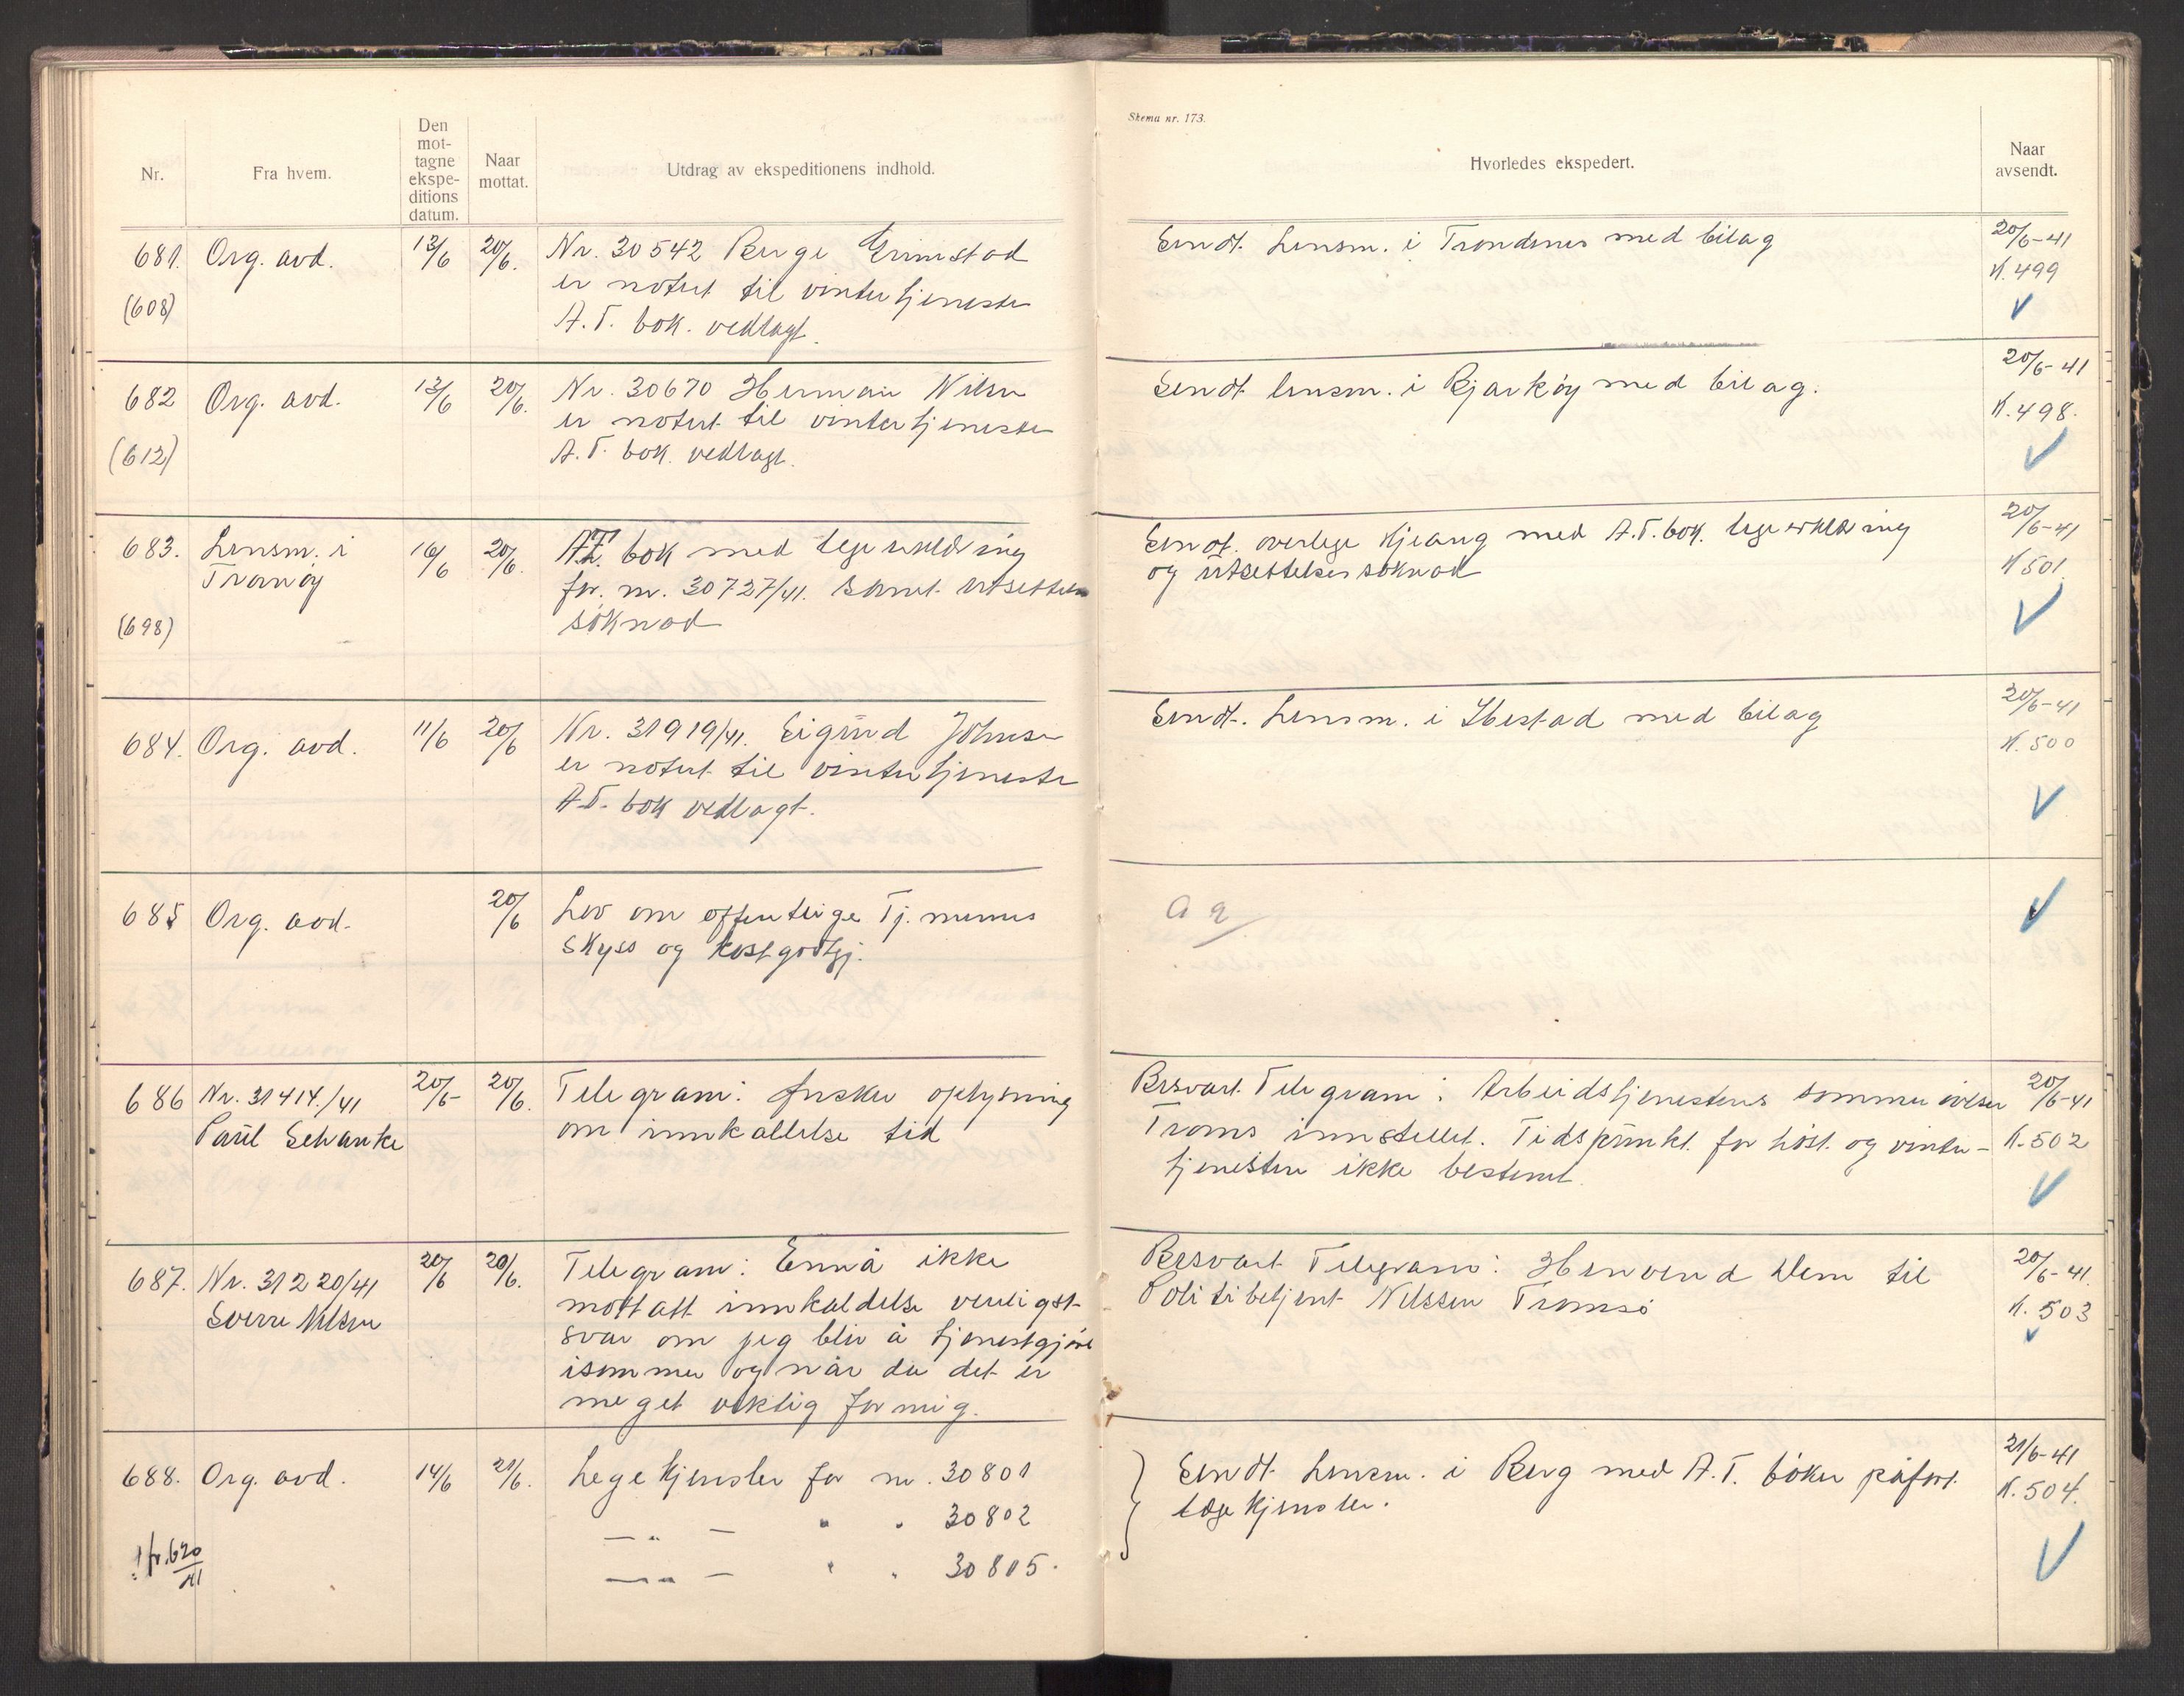 Skema nr. 173.
Nr.
Fra hvem.
Den
mot-
tagne
ekspe-
ditions
datum.
Naar
mottat.
Utdrag av ekspeditionens indhold.
Hvorledes ekspedert.
Naar
avsendt.
681. Org. avd. 13/6 20/6. Nr. 30542 Birge Grimstad
er notert til vintertjeneste
(608) A.T. bok. vedlagt.
Sendt Lensm. i Trondenes med bilag 20/6-41
K. 499
682 Org. avd. 13/6 20/6. Nr. 30670 Herman Nilsen
er notert til vintertjeneste
(612) A.T. bok. vedlagt.
Sendt lensm. i Bjarköy med bilag. 20/6-41
K. 498.
683. Lensm. i 16/6 20/6. A.T. bok med legeerklæring
Tranöy for nr. 30727/41. samt utsettelses
(698) söknad
Sendt. overlege Kjeang med A.T. bok. legeerklæring 20/6-41
og utsettelsessöknad K 501
684. Org. avd. 11/6 20/6 Nr. 31919/41. Sigund Johnsen
er notert til vintertjeneste
A.T. bok vedlagt.
Sendt. Lensm. i Ibestad med bilag 20/6-41
K. 500
685 Org. avd. 20/6 Lov om offentlige Tj. menns
skyss og kostgodtgj.
686 Nr. 31414./41 20/6 20/6. Telegram: Ønsker oplysning
Paul Schanke om innkallelse tid
Besvart Telegram: Arbeidstjenestens sommer övelser 20/6-41
Troms innstillet. Tidspunkt. for höst. og vinter- K. 502
tjenesten ikke bestemt
687. Nr. 31220/41 20/6 20/6. Telegram: Ennå ikke
Sverre Nilsen mottatt innkaldelse venligst
svar om jeg blir å tjenestgjöre
isommer og når da det er
meget viktig for mig.
Besvart Telegram: Henvend Dem til 20/6-41.
Politibetjent Nilssen Tromsö K. 503
688. Org. avd. 14/6 21/6. Legekjensler for nr. 30801
— „ — " " 30802
— „ — " " 30805.
jfr. 620/41
Sendt Lensm. i Berg med A.T. böker påfört 21/6-41
legekjensler. K. 504.